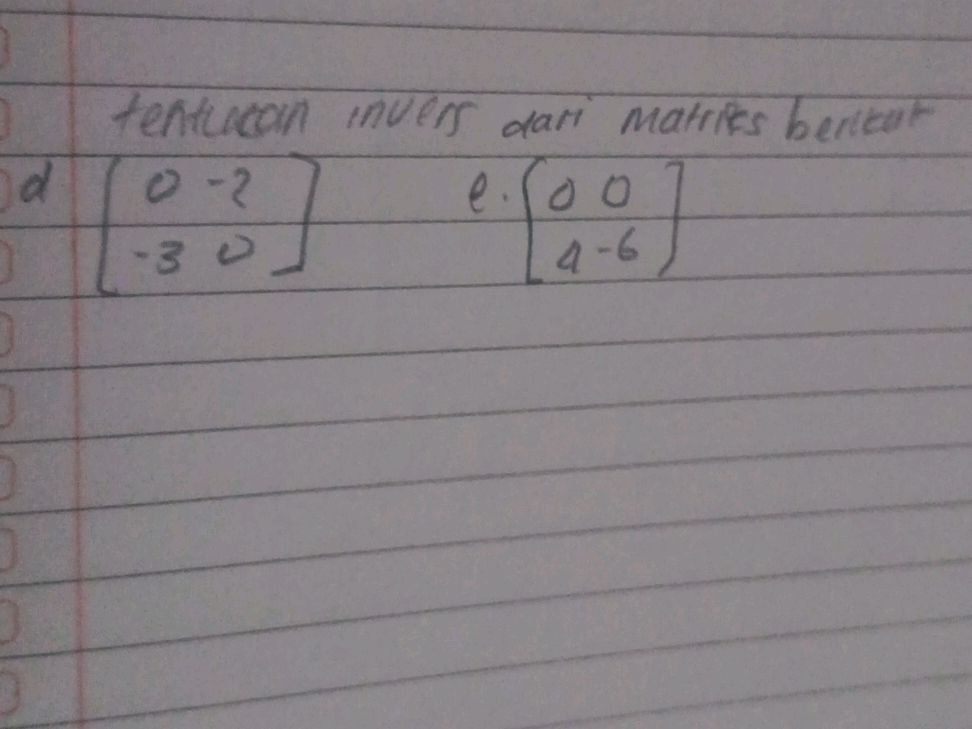 tentukan invers dari matriks berikut
d [ 0 -2 e. [ 0 0 ]
-3 0 ] 4 -6 ]